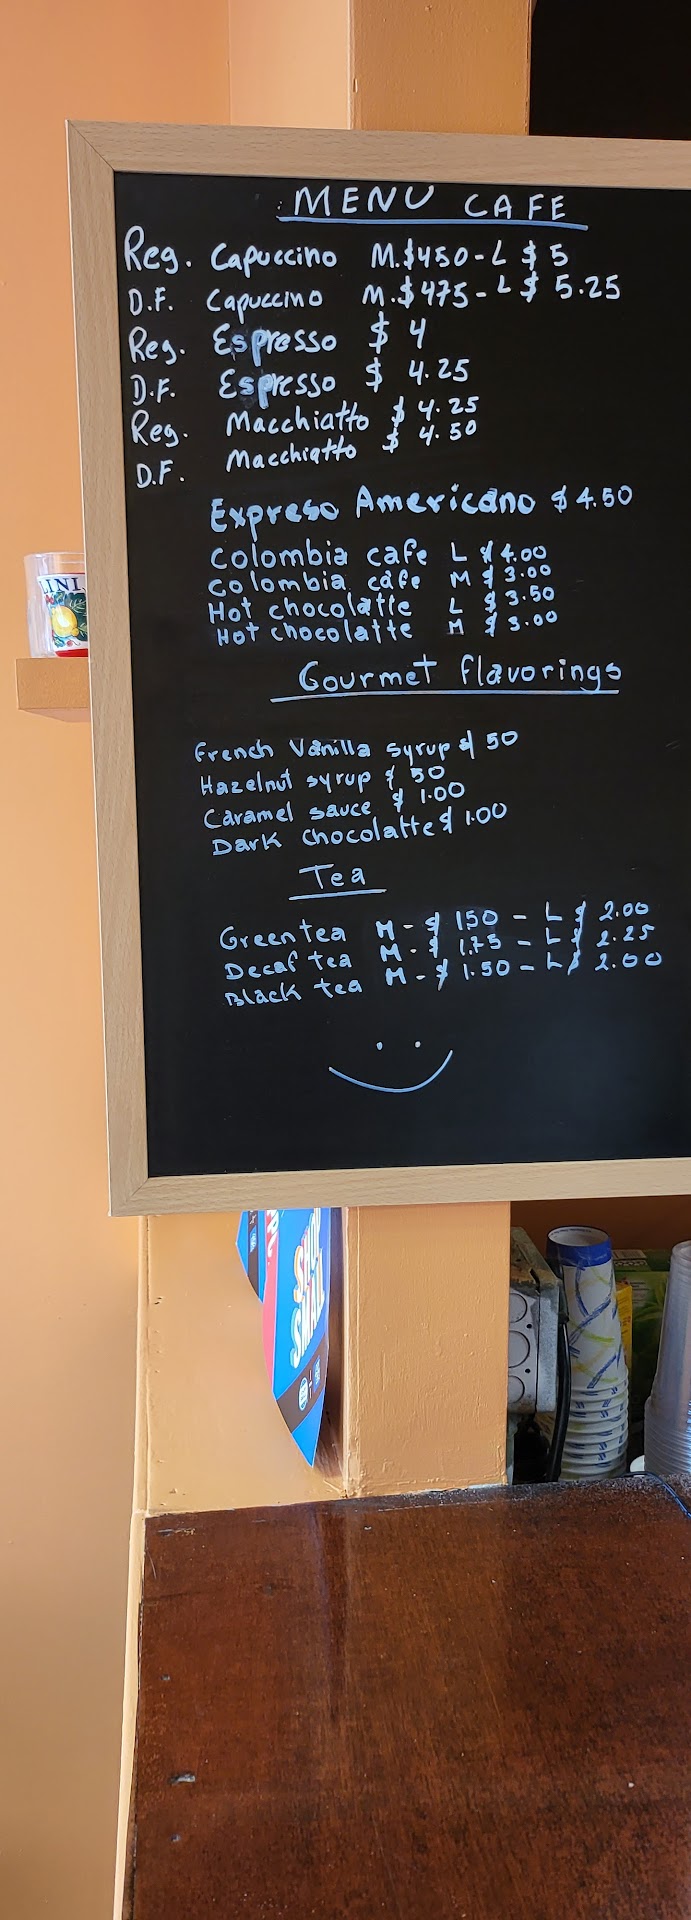 MENU CAFE
Reg. Capuccino M.$450-L $5
D.F. Capuccino M.$475-L$ 5.25
Reg. Espresso $4
D.F. Espresso $ 4.25
Reg. Macchiatto $ 4.25
D.F. Macchiatto $ 4.50
Expreso Americano $4.50
Colombia cafe L $4.00
Colombia cafe M $3.00
Hot chocolatte L $3.50
Hot chocolatte M $3.00
Gourmet flavorings
French Vanilla syrup $50
Hazelnut syrup $50
Caramel sauce $1.00
Dark chocolatte $1.00
Tea
Green tea M-$ 150 - L$ 2.00
Decaf tea M-$ 1.75 - L$ 2.25
Black tea M-$ 1.50 - L$ 2.00
LINI
SMALL